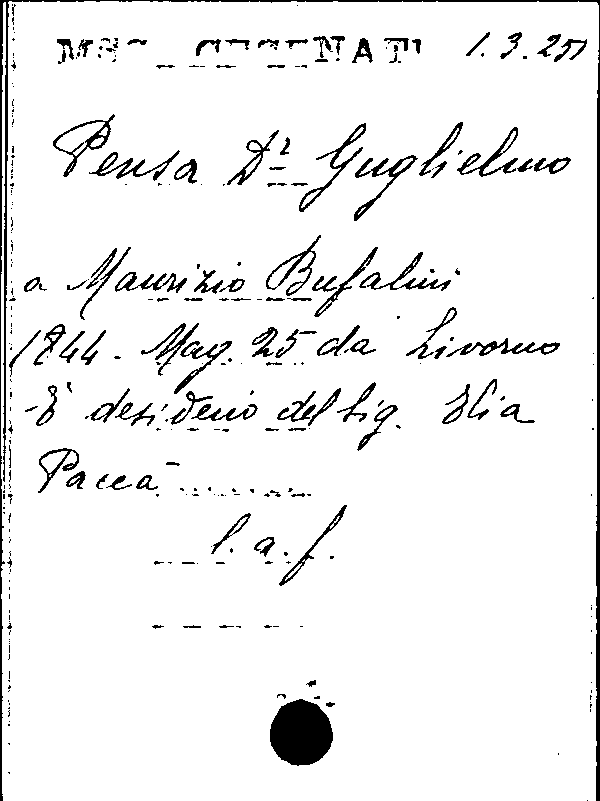 MSS. CESENATI 1.3.251
Pensa Dr Guglielmo
a Maurizio Bufalini
1844. Mag. 25 da Livorno
È desiderio del Sig. Elia
Pacca
l. a. f.